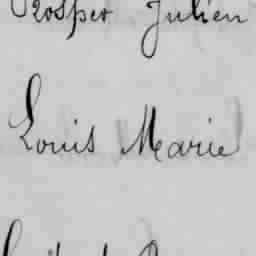 Prosper Julien
Louis Marie